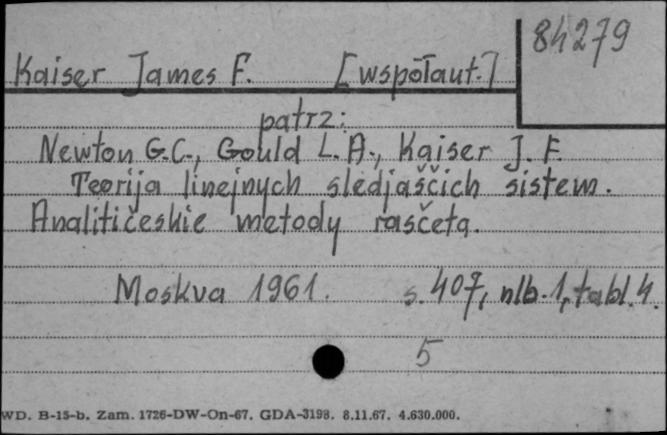 84279
Kaiser James F. [współaut.]
patrz:
Newton G.C., Gould L.A., Kaiser J. F.
Teorija linejnych sledjaščich sistem.
Analitičeskie metody rasčeta.
Moskva 1961. s. 407, nlb. 1, tabl. 4.
5
WD. B-15-b. Zam. 1726-DW-On-67. GDA-3198. 8.11.67. 4.630.000.